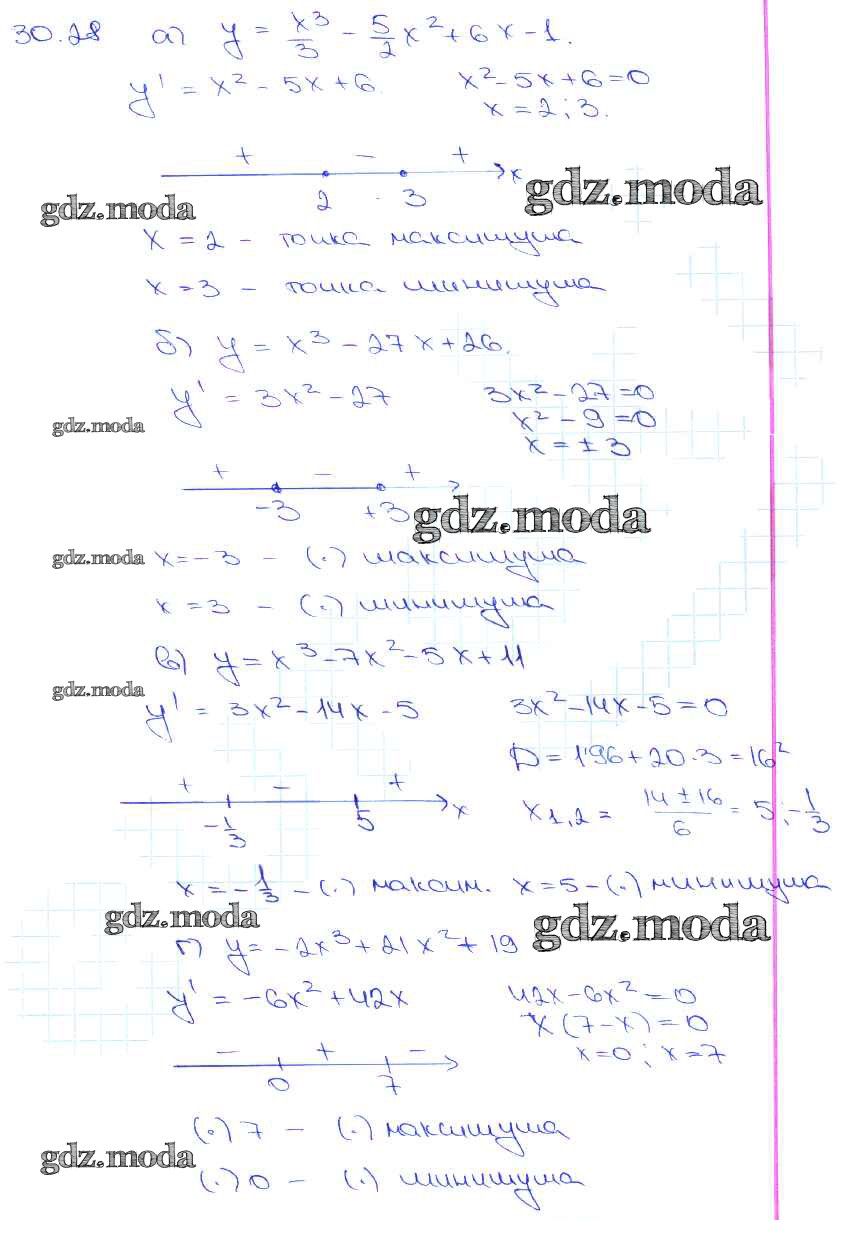 30.28 а) y = x³/3 - 5/2 x² + 6x - 1.
y' = x² - 5x + 6. x² - 5x + 6 = 0
x = 2; 3.
+ - + x
2 3
gdz.moda gdz.moda
x = 2 - точка максимума
x = 3 - точка минимума
б) y = x³ - 27x + 26.
y' = 3x² - 27 3x² - 27 = 0
gdz.moda x² - 9 = 0
x = ± 3
+ - +
-3 +3 gdz.moda
gdz.moda x = -3 - (·) максимума
x = 3 - (·) минимума
в) y = x³ - 7x² - 5x + 11
gdz.moda
y' = 3x² - 14x - 5 3x² - 14x - 5 = 0
D = 196 + 20·3 = 16²
+ - + x
-1/3 5
x1,2 = (14 ± 16)/6 = 5; -1/3
x = -1/3 - (·) максим. x = 5 - (·) минимума
gdz.moda gdz.moda
г) y = -2x³ + 21x² + 19
y' = -6x² + 42x 42x - 6x² = 0
x(7 - x) = 0
x = 0; x = 7
- + -
0 7
(·) 7 - (·) максимума
gdz.moda
(·) 0 - (·) минимума